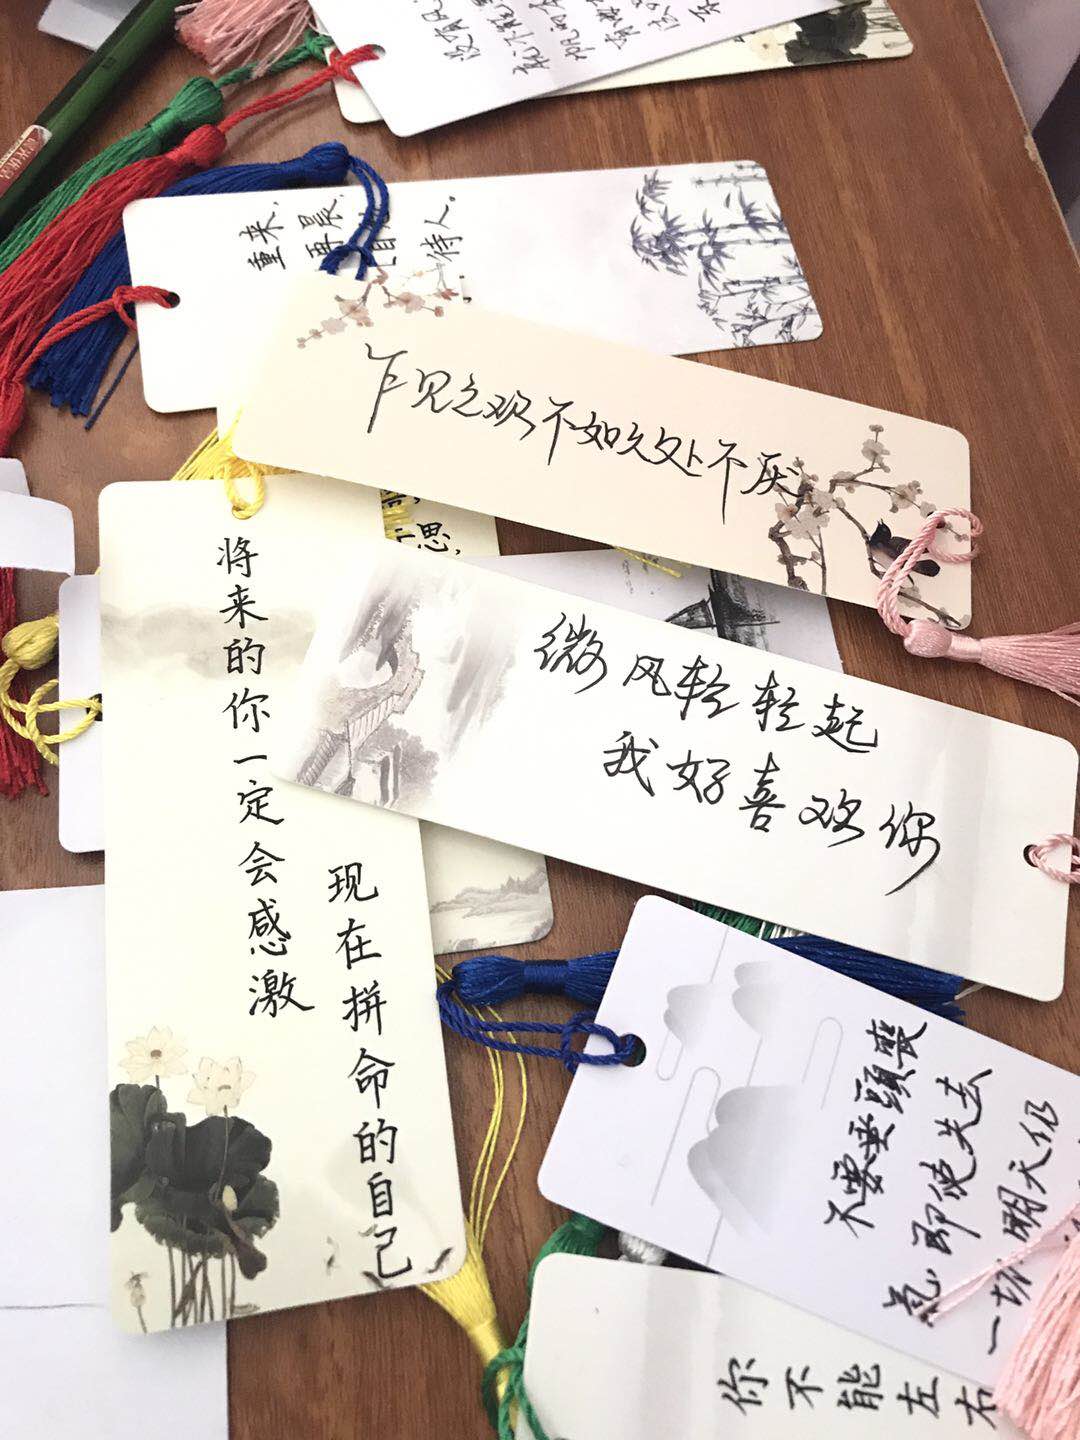 重来，
再晨，
待人。
乍见之欢不如久处不厌
思，
将来的你一定会感激
现在拼命的自己
微风轻轻起
我好喜欢你
不要垂頭喪
氣，即使失去
一切，明天仍
你不能左右